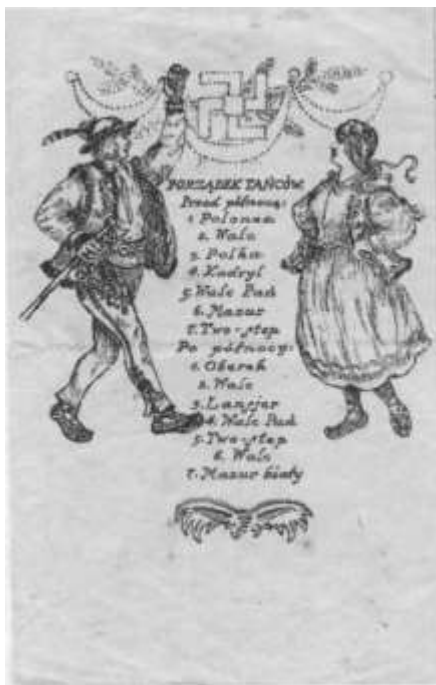 PORZĄDEK TAŃCÓW
Przed północą:
1. Polonez
2. Walc
3. Polka
4. Kadryl
5. Walc Pań
6. Mazur
7. Two-step
Po północy:
1. Oberek
2. Walc
3. Lansjer
4. Walc Pań
5. Two-step
6. Walc
7. Mazur biały